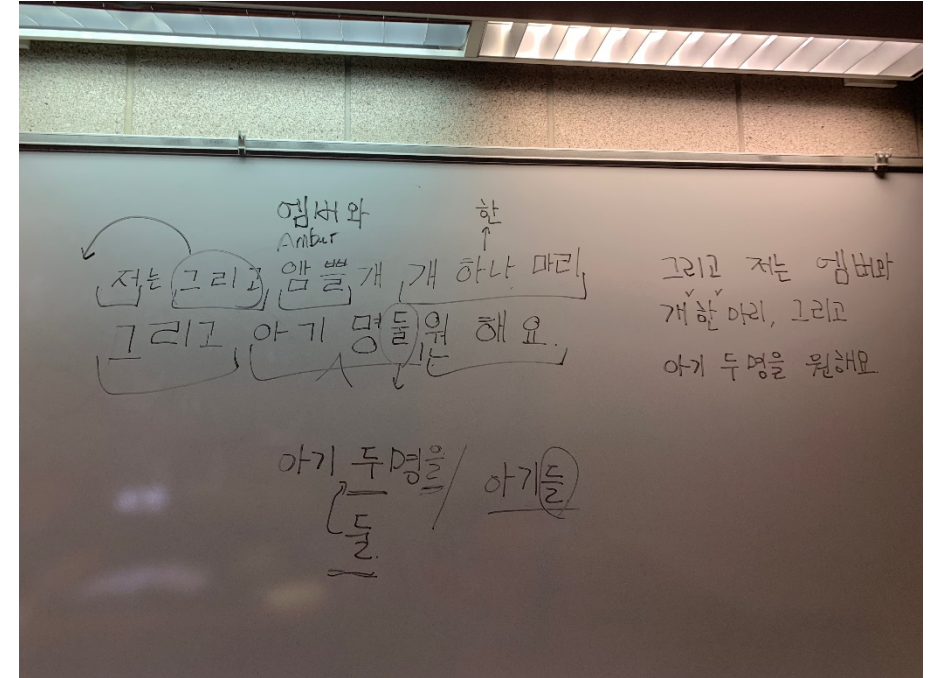 엠버와 한
Ambur
저는 그리고 암쁠개 개 하나 마리
그리고 아기 명둘원 해요.
아기 두명을 / 아기들
둘.
그리고 저는 엠버와
개 한 마리, 그리고
아기 두 명을 원해요